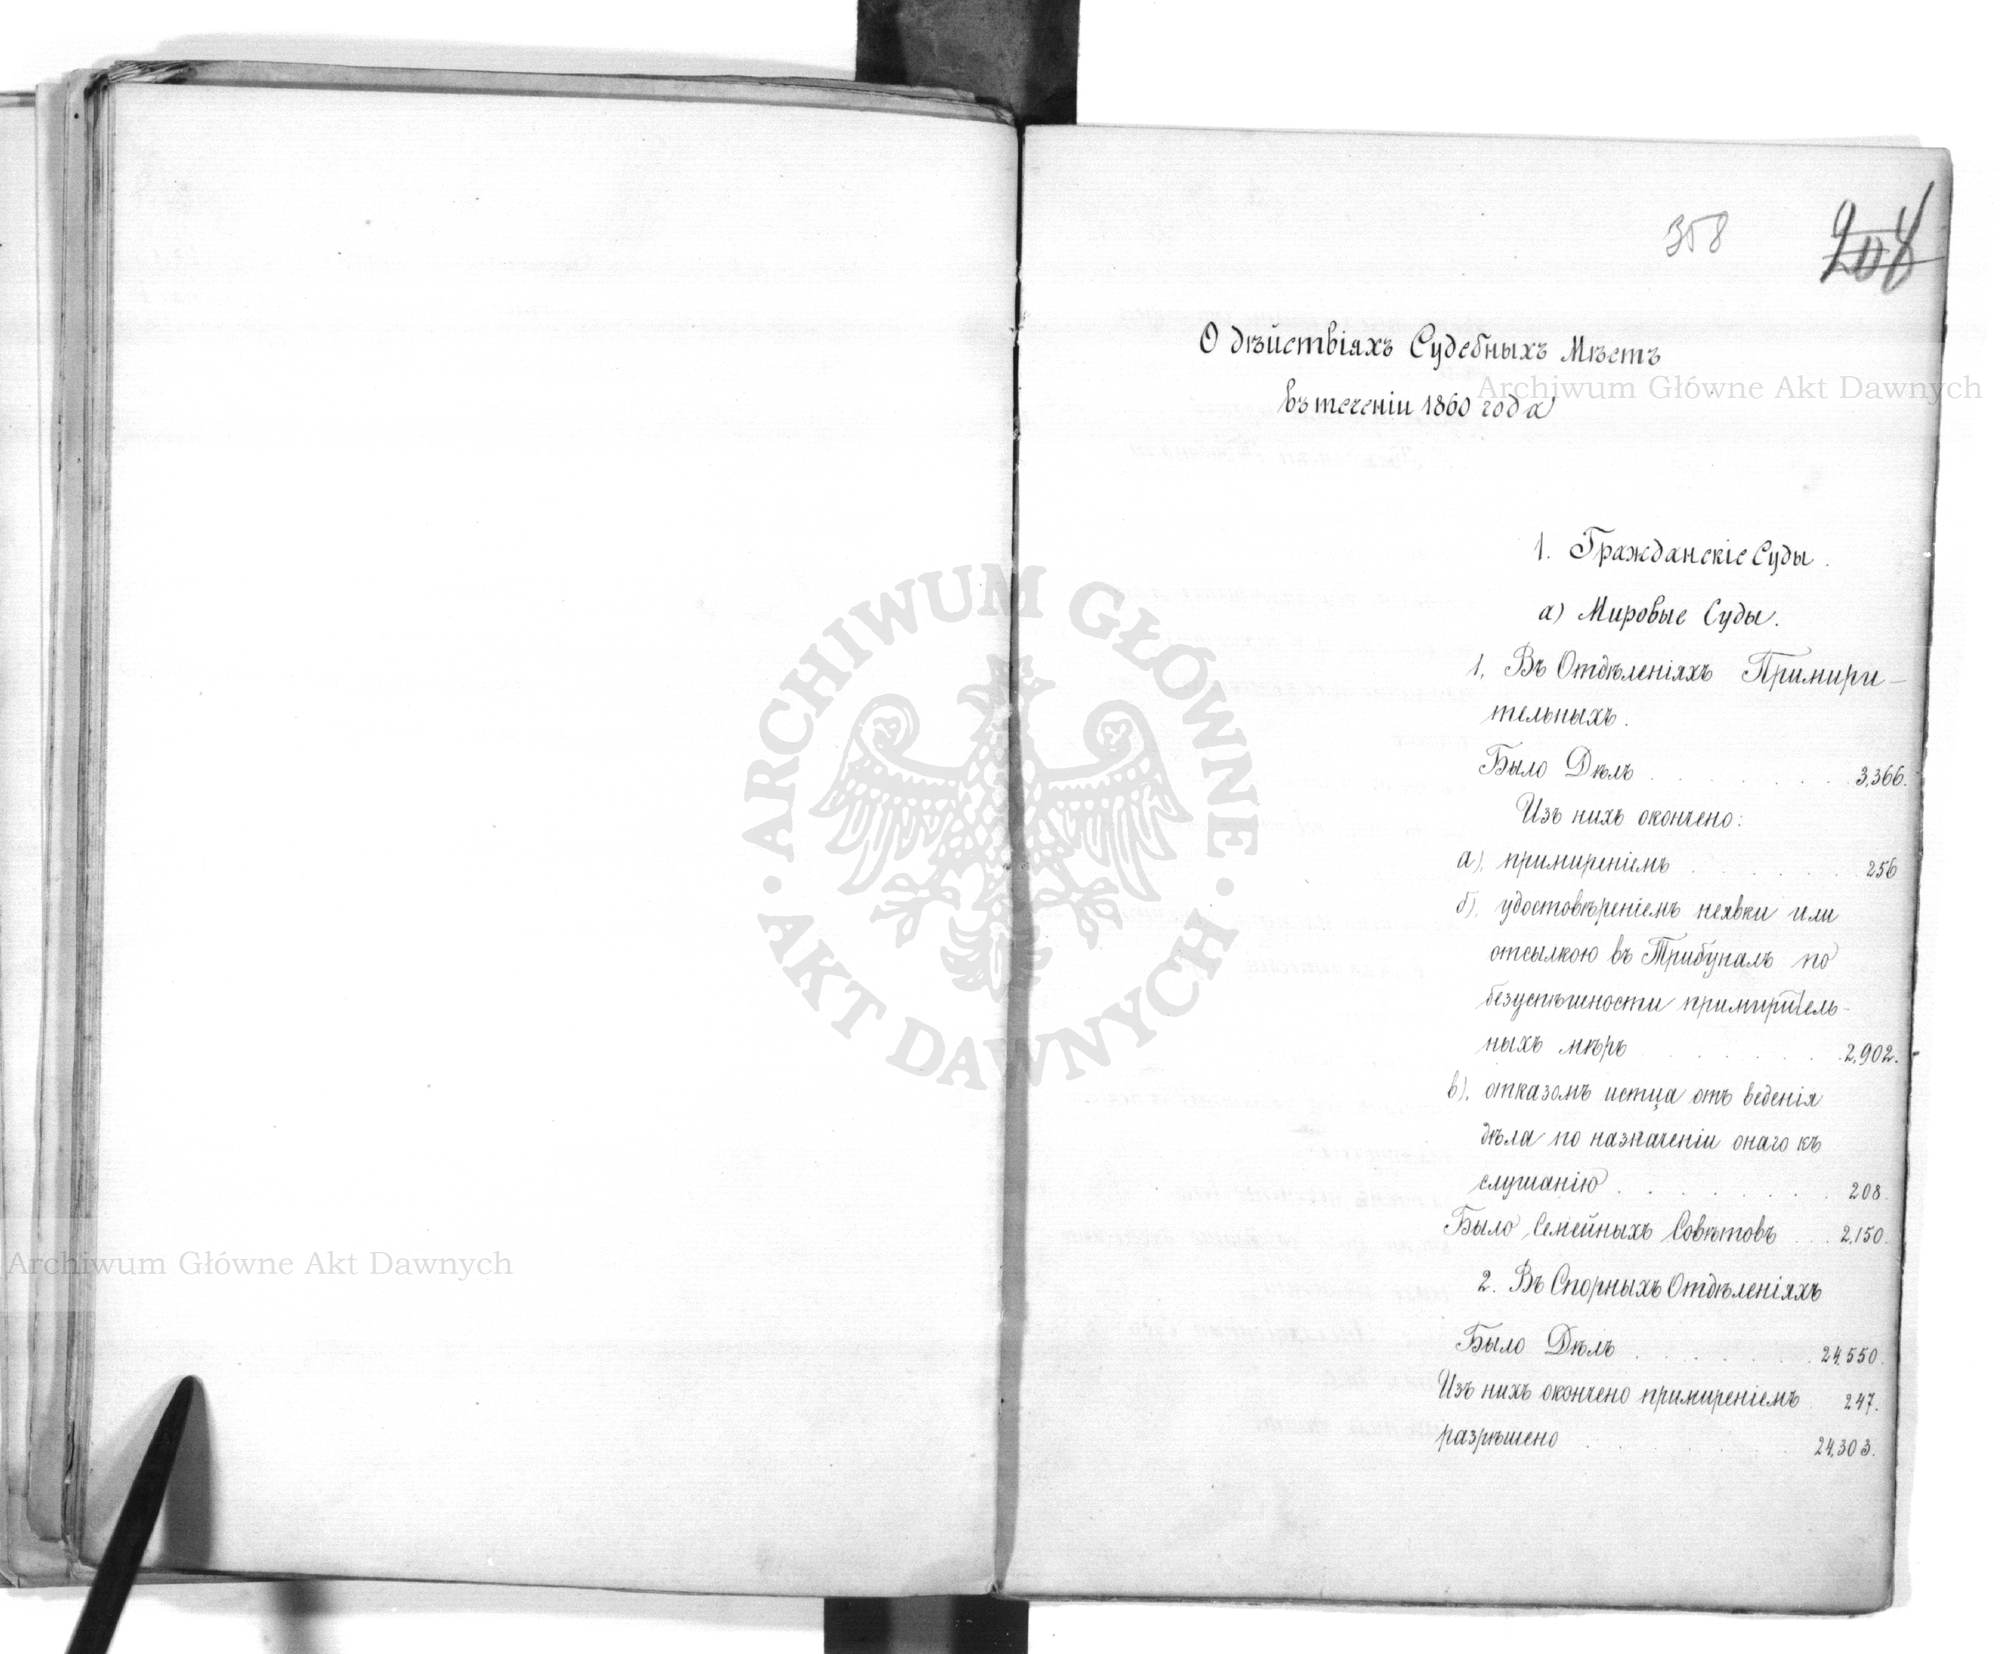 358
208
О дѣйствіяхъ Судебныхъ Мѣстъ
въ теченіи 1860 года
1. Гражданскіе Суды.
а) Мировые Суды.
1, Въ Отдѣленіяхъ Примири-
тельныхъ.
Было Дѣлъ . . . . . . . 3,366.
Изъ нихъ окончено:
а), примиреніемъ . . . . . . 256
б), удостовѣреніемъ неявки или
отсылкою въ Трибуналъ по
безуспѣшности примиритель-
ныхъ мѣръ . . . . . . . 2,902.
в), отказомъ истца отъ веденія
дѣла по назначеніи онаго къ
слушанію . . . . . . . 208.
Было Семейныхъ Совѣтовъ . . . 2,150.
2. Въ Спорныхъ Отдѣленіяхъ
Было Дѣлъ . . . . . . . 24,550.
Изъ нихъ окончено примиреніемъ . 247.
разрѣшено . . . . . . . 24,303.
Archiwum Główne Akt Dawnych
ARCHIWUM GŁÓWNE
AKT DAWNYCH
Archiwum Główne Akt Dawnych